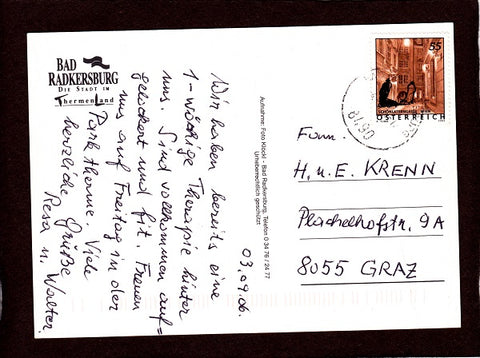 BAD
RADKERSBURG
DIE STADT IM
Thermenland
03.09.06.
Wir haben bereits eine
1-wöchige Therapie hinter
uns. Sind vollkommen auf=
gelockert und fit. Freuen
uns auf Freitag in der
Parktherme. Viele
herzliche Grüße
Resa u. Walter.
Aufnahme: Foto Klöckl - Bad Radkersburg, Telefon 0 34 76 / 24 77
Urheberrechtlich geschützt
55
ÖSTERREICH
Fam.
H. u. E. KRENN
Plachelhofstr. 9A
8055 GRAZ